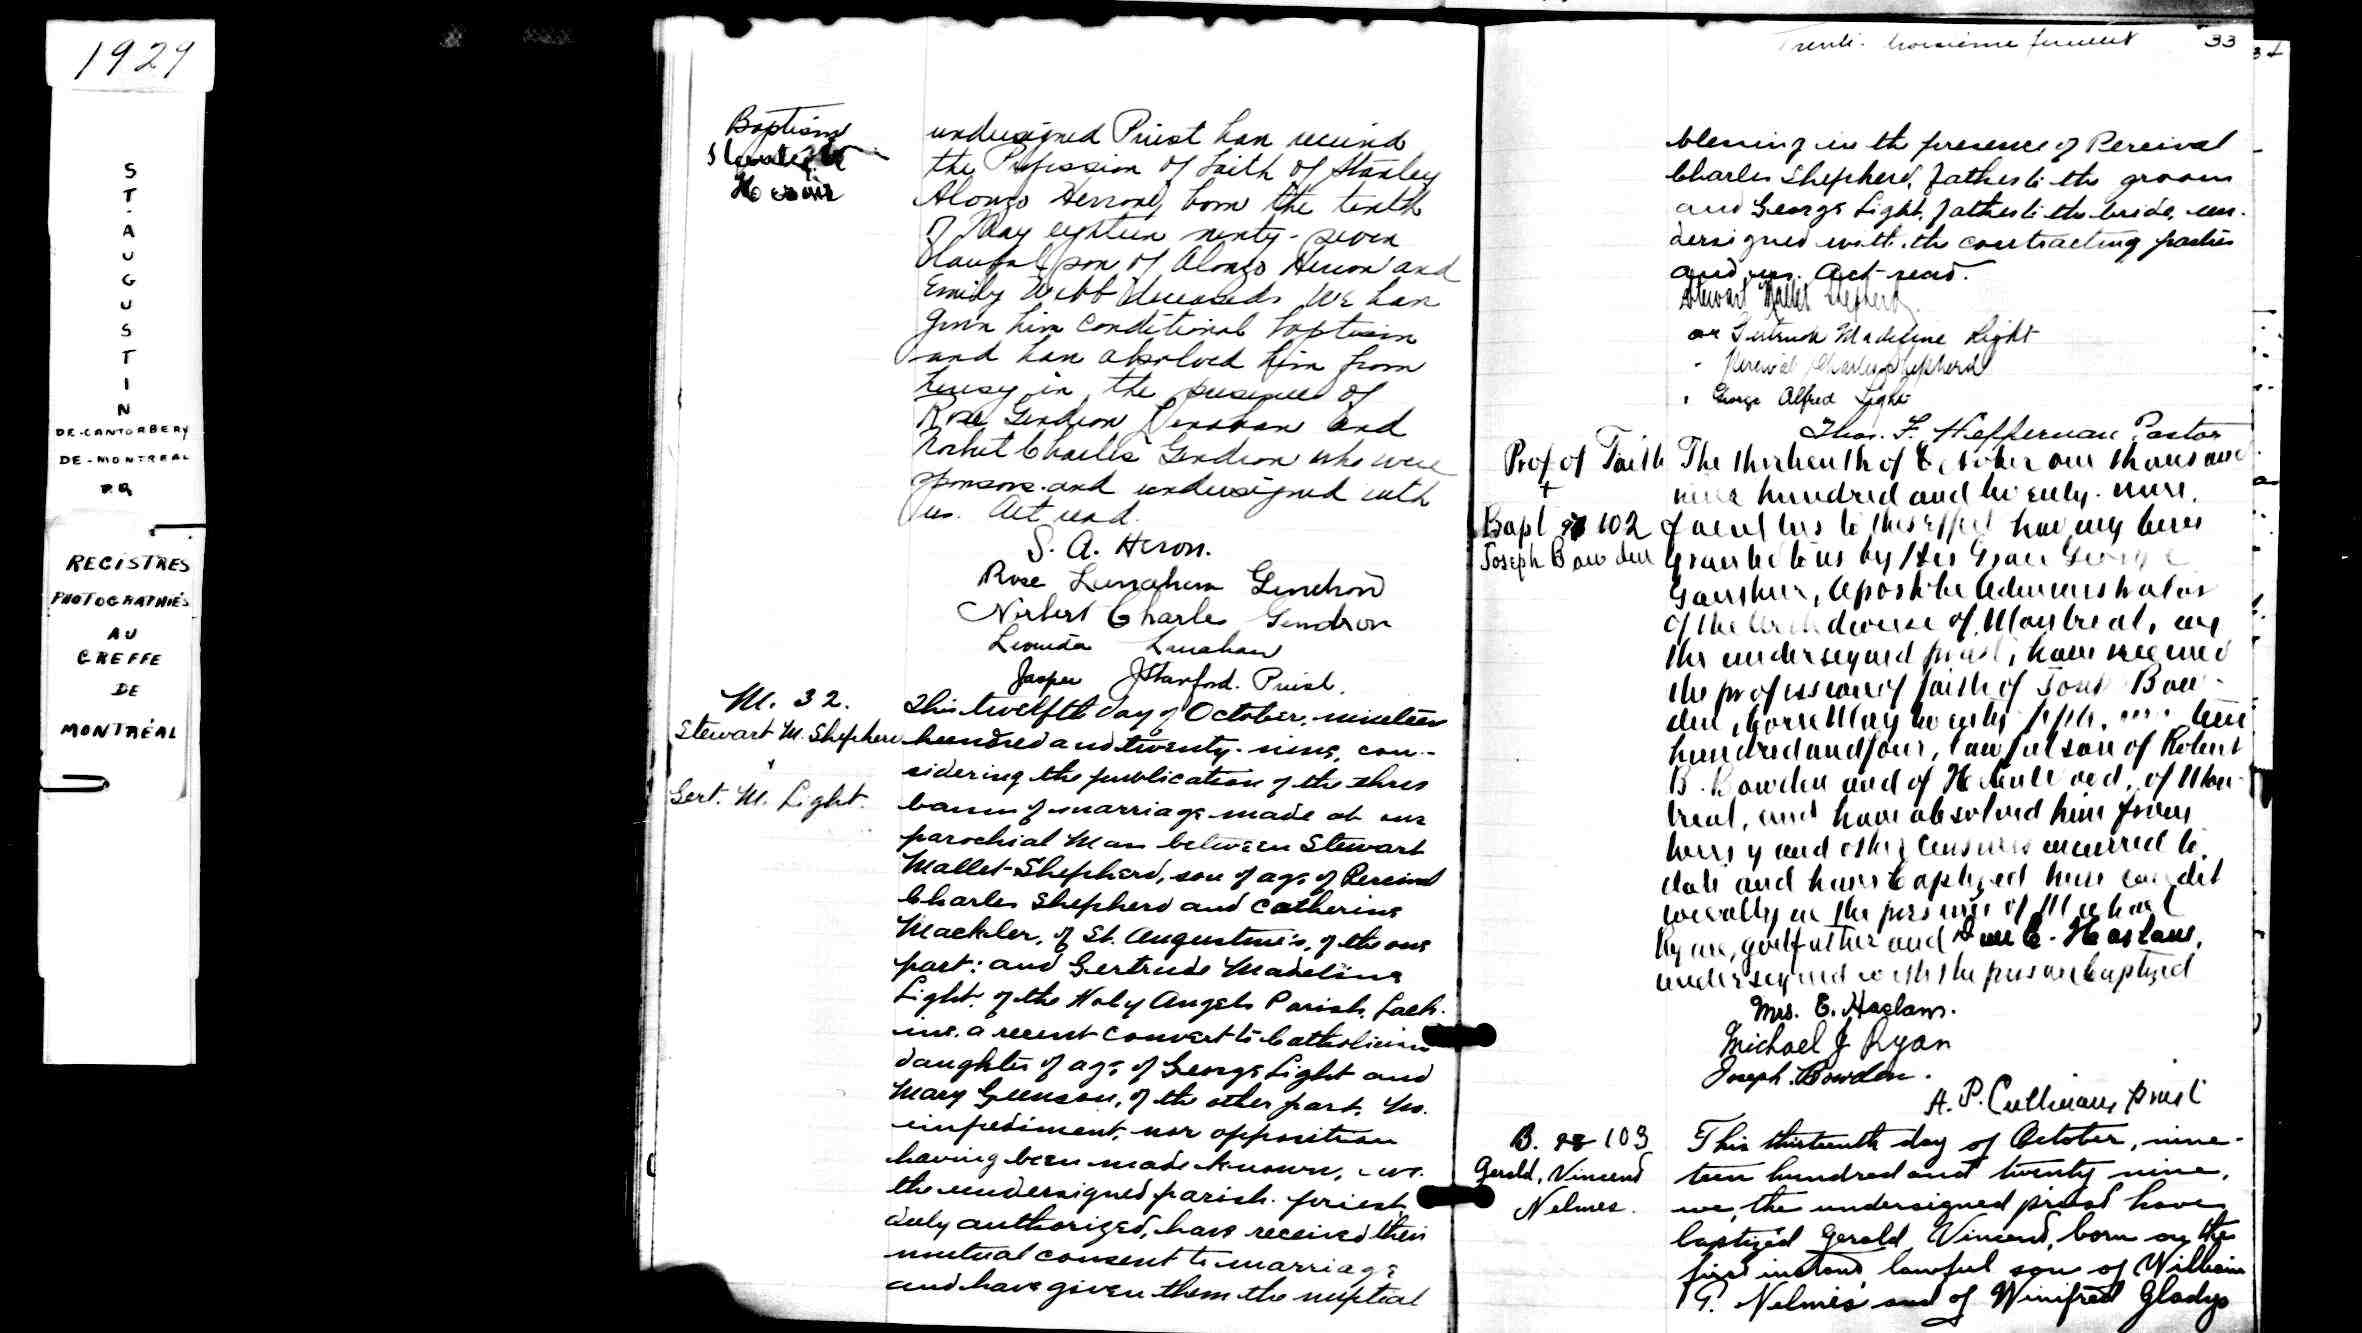 1929
ST. AUGUSTIN
DE-CANTORBERY
DE-MONTREAL
P.Q
REGISTRES
PHOTOGRAPHIÉS
AU
GREFFE
DE
MONTRÉAL
Baptism
Heron
undersigned Priest have received
the Profession of Faith of Stanley
Alonzo Herrone, born the tenth
of May eighteen ninety-seven
lawful son of Alonzo Heron and
Emily Webb deceased. We have
given him conditional baptism
and have absolved him from
heresy in the presence of
Rose Gendron Lenahan and
Norbert Charles Gendron who were
sponsors and undersigned with
us. Act read.
S. A. Heron.
Rose Lenahan Gendron
Norbert Charles Gendron
Lenahan
Jasper J Stanford. Priest.
M. 32.
Stewart M. Shepherd
&
Gert. M. Light.
This twelfth day of October, nineteen
hundred and twenty-nine, con-
sidering the publication of the three
banns of marriage made at our
parochial Mass between Stewart
Mallet-Shepherd, son of age of Percival
Charles Shepherd and Catherine
Mackler, of St. Augustine's, of the one
part: and Gertrude Madeline
Light, of the Holy Angels Parish, Lach-
ine, a recent convert to Catholicism
daughter of age of George Light and
Mary Greenson, of the other part. No
impediment, nor opposition
having been made known, we
the undersigned parish priest,
duly authorized, have received their
mutual consent to marriage
and have given them the nuptial
Trente-troisième feuillet 33
34
blessing in the presence of Percival
Charles Shepherd, father to the groom
and George Light, father to the bride, un-
dersigned with the contracting parties
and us. Act read.
Stewart Mallet Shepherd
Gertrude Madeline Light
Percival Charles Shepherd
George Alfred Light
Thos. F. Heffernan Pastor
Prof of Faith
+
Bapt 102
Joseph Bowden
The thirteenth of October one thousand
nine hundred and twenty-nine,
faculties to this effect having been
granted to us by His Grace George
Gauthier, Apostolic Administrator
of the Archdiocese of Montreal, we
the undersigned priest, have received
the profession of faith of Joseph Bow-
den, born May twenty fifth, nineteen
hundred and four, lawful son of Robert
B. Bowden and of H of Mon-
treal, and have absolved him from
heresy and other censures incurred to
date and have baptized him condit
ionally in the presence of Michael
Ryan, godfather and Mrs E. Haslam,
undersigned with the person baptized
Mrs. E. Haslam.
Michael J Ryan
Joseph. Bowden.
A. P. Cullinan, priest
B. 103
Gerald, Vincent
Nelmes.
This thirteenth day of October, nine-
teen hundred and twenty nine,
we, the undersigned priest have
baptized Gerald Vincent, born on the
first instant, lawful son of William
G. Nelmes and of Winifred Gladys